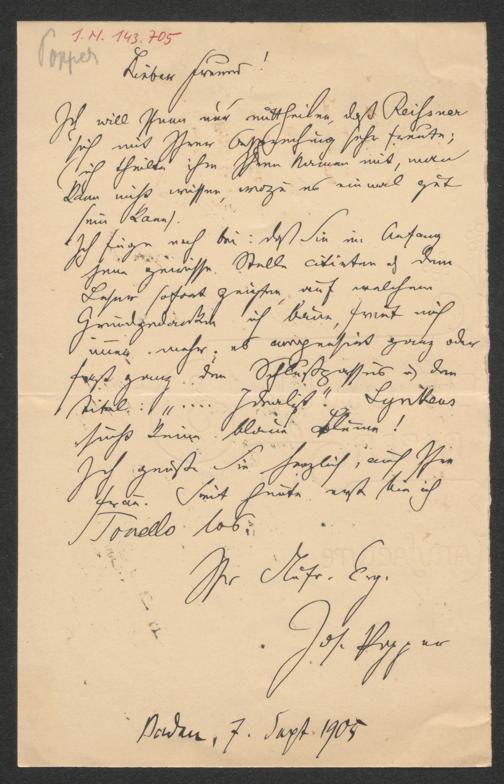 I. N. 143.705
Popper
Lieber Freund!
Ich will Ihnen nur mittheilen, daß Reißner
sich mit Ihrer Besprechung sehr freute;
(ich theilte ihm Ihren Namen mit, man
kann nicht wissen, wozu es einmal gut
sein kann).
Ich füge noch bei: daß Sie im Anfang
jene gewisse Stelle citirten u dem
Leser sofort zeigten, auf welchem
Grundgedanken ich baue, freut mich
immer mehr; es compensirt ganz oder
fast ganz den Schlußpassus u den
Titel: ".... Idealist". Lynkeus
sucht keine blaue Blume!
Ich grüße Sie herzlich, auch Ihre
Frau. Seit heute erst bin ich
Tonello los.
Ihr
Jos. Popper
Baden, 7. Sept. 1905